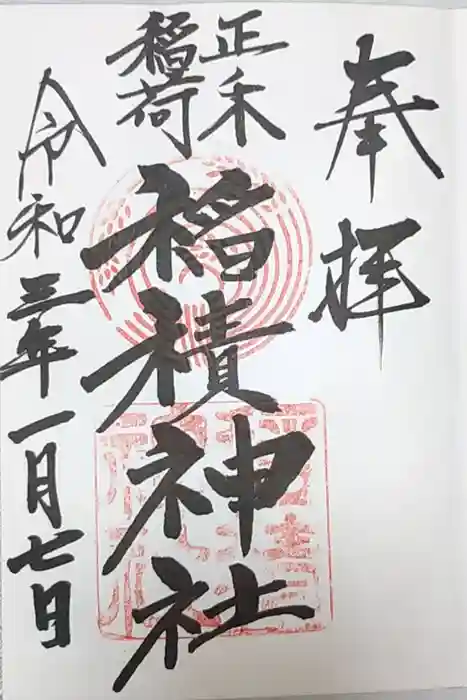 奉拝
正一
稲荷
稲積神社
令和三年一月七日